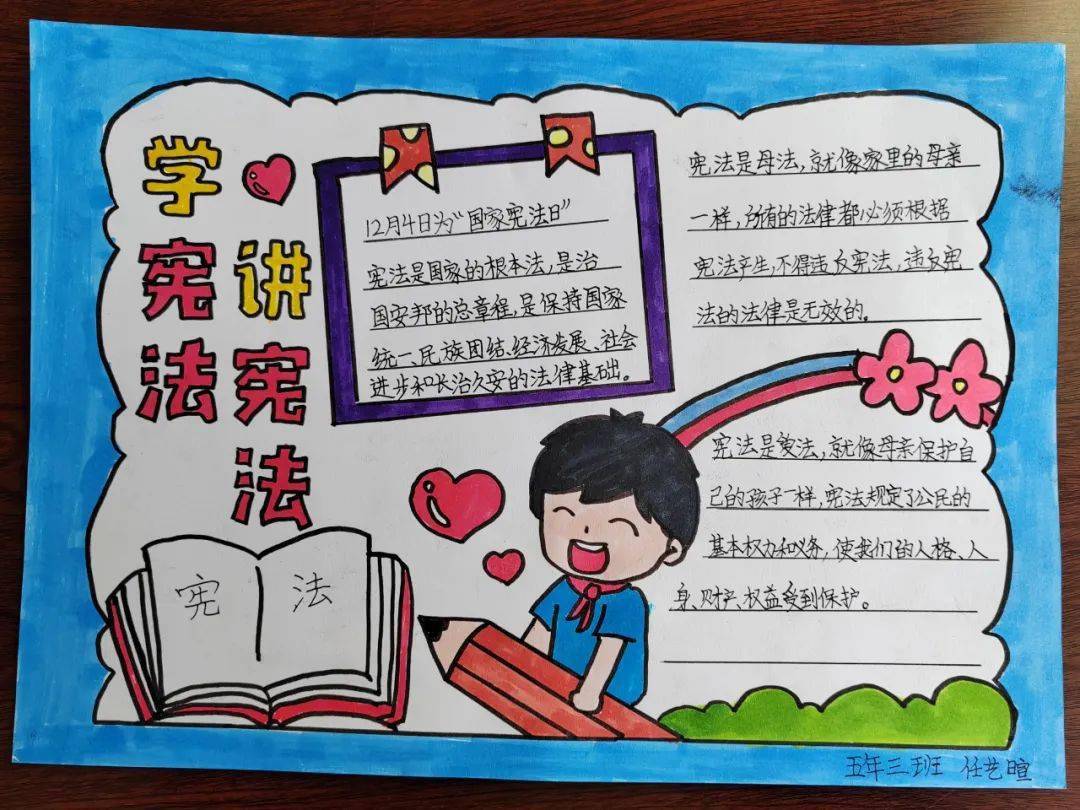 学宪法
讲宪法
12月4日为“国家宪法日”
宪法是国家的根本法，是治
国安邦的总章程，是保持国家
统一、民族团结、经济发展、社会
进步和长治久安的法律基础。
宪法是母法，就像家里的母亲
一样，所有的法律都必须根据
宪法产生，不得违反宪法，违反宪
法的法律是无效的。
宪法是爱法，就像母亲保护自
己的孩子一样，宪法规定了公民的
基本权力和义务，使我们的人格、人
身、财产、权益受到保护。
宪法
五年三班 任艺暄